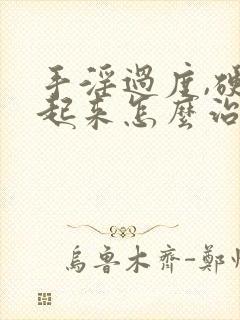 手淫過度,硬
起来怎麼治
烏魯木齊-鄭州